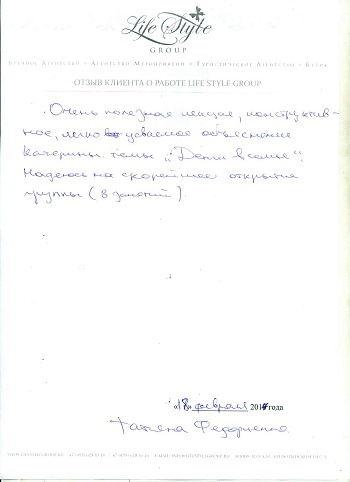 Life Style
GROUP
Брачное Агентство • Агентство Мероприятий • Туристическое Агентство • Бутик
ОТЗЫВ КЛИЕНТА О РАБОТЕ LIFE STYLE GROUP
Очень полезная лекция, конструктив-
ное, легко усваемое объяснение
Катерины темы "Дети в семье".
Надеюсь на скорейшее открытие
группы (8 занятий).
«18» февраля 2011 года
Татьяна Федорченко